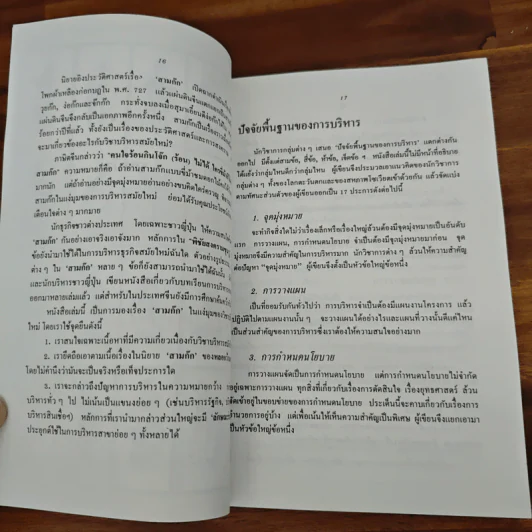 16
นิยายอิงประวัติศาสตร์เรื่อง 'สามก๊ก' เปิดฉาก
โพกผ้าเหลืองก่อกบฏใน พ.ศ. 727 แล้วแผ่นดินจีน
วุยก๊ก, ง่อก๊กและจ๊กก๊ก กระทั่งจบลงเมื่อสุมาเอี๋ยน
แผ่นดินจีนจึงกลับเป็นเอกภาพอีกครั้งหนึ่ง สามก๊กเป็นเรื่อง
ร้อยกว่าปีที่แล้ว ทั้งยังเป็นเรื่องของประวัติศาสตร์และการ
จะมาเกี่ยวข้องอะไรกับวิชาบริหารสมัยใหม่?
ภาษิตจีนกล่าวว่า
สามก๊ก' ความหมายก็คือ ถ้าอ่านสามก๊กแบบชี้นำ
มากนัก แต่ถ้าอ่านอย่างมีจุดมุ่งหมายอ่านอย่างขบคิดใคร่ครวญ
สามก๊กในแง่มุมของการบริหารสมัยใหม่ ย่อมได้รับคุณประโยชน์
เตือนใจต่าง ๆ มากมาย
นักธุรกิจชาวต่างประเทศ โดยเฉพาะชาวญี่ปุ่น ให้ความ
'สามก๊ก' กันอย่างเอาจริงเอาจังมาก หลักการใน 'พิชัยสงคราม
ข้อยังนำมาใช้ได้ในการบริหารธุรกิจสมัยใหม่ฉันใด ตัวอย่างรูป
ต่าง ๆ ใน 'สามก๊ก' หลาย ๆ ข้อก็ยังสามารถนำมาใช้ได้ฉันนั้น
และนักบริหารชาวญี่ปุ่น เขียนหนังสือเกี่ยวกับบทเรียนการบริหาร
ออกมาหลายเล่มแล้ว แต่สำหรับในประเทศจีนยังมีการศึกษาค้นคว้า
หนังสือเล่มนี้ เป็นการมองเรื่อง 'สามก๊ก' ในแง่มุมของ
ใหม่ โดยเราใช้จุดยืนดังนี้
1. เราสนใจเฉพาะเนื้อหาที่มีความเกี่ยวเนื่องกับวิชาบริหาร
2. เรายึดถือเอาตามเนื้อเรื่องในนิยาย 'สามก๊ก' ของหลอ
โดยไม่คำนึงว่านั่นจะเป็นจริงหรือเท็จประการใด
3. เราจะกล่าวถึงปัญหาการบริหารในความหมายกว้าง
บริหารทั่ว ๆ ไป ไม่เน้นเป็นแขนงย่อย ๆ (เช่นบริหารรัฐกิจ,
บริหารสินเชื่อฯ) หลักการที่เรานำมากล่าวส่วนใหญ่จะมี 'ลักษณะ
ประยุกต์ใช้ในการบริหารสาขาย่อย ๆ ทั้งหลายได้
17
ปัจจัยพื้นฐานของการบริหาร
นักวิชาการกลุ่มต่าง ๆ เสนอ 'ปัจจัยพื้นฐานของการบริหาร' แตกต่างกัน
ออกไป มีตั้งแต่สามข้อ, สี่ข้อ, ห้าข้อ, เจ็ดข้อ ฯ หนังสือเล่มนี้ไม่มีหน้าที่อธิบาย
โต้แย้งว่ากลุ่มไหนดีกว่ากลุ่มไหน ผู้เขียนจึงประมวลเอาแนวคิดของนักวิชาการ
กลุ่มต่าง ๆ ทั้งของโลกตะวันตกและของสหภาพโซเวียตเข้าด้วยกัน แล้วขัดแปลง
ตามทัศนะส่วนตัวของผู้เขียนออกเป็น 17 ประการดังต่อไปนี้
1. จุดมุ่งหมาย
จะทำกิจสิ่งใดไม่ว่าเรื่องเล็กหรือเรื่องใหญ่ล้วนต้องมีจุดมุ่งหมายเป็นอันดับ
แรก การวางแผน, การกำหนดนโยบาย จำเป็นต้องมีจุดมุ่งหมายมาก่อน จุด
มุ่งหมายจึงมีความสำคัญในการบริหารมาก นักวิชาการต่าง ๆ ล้วนให้ความสำคัญ
ต่อปัญหา "จุดมุ่งหมาย" ผู้เขียนจึงตั้งเป็นหัวข้อใหญ่ข้อหนึ่ง
2. การวางแผน
เป็นที่ยอมรับกันทั่วไปว่า การบริหารจำเป็นต้องมีแผนงานโครงการ แล้ว
ปฏิบัติไปตามแผนงานนั้น ๆ จะวางแผนได้อย่างไรและแผนที่วางนั้นดีแค่ไหน
เป็นส่วนสำคัญของการบริหารซึ่งเราต้องให้ความสนใจอย่างมาก
3. การกำหนดนโยบาย
การวางแผนจัดเป็นการกำหนดนโยบาย แต่การกำหนดนโยบายไม่จำกัด
อยู่เฉพาะการวางแผน ทุกสิ่งที่เกี่ยวกับเรื่องการตัดสินใจ เรื่องยุทธศาสตร์ ล้วน
จัดเข้าอยู่ในขอบข่ายของการกำหนดนโยบาย ประเด็นนี้จะคาบเกี่ยวกับเรื่องการ
อำนวยการอยู่บ้าง แต่เพื่อเน้นให้เห็นความสำคัญเป็นพิเศษ ผู้เขียนจึงแยกเอามา
เป็นหัวข้อใหญ่ข้อหนึ่ง